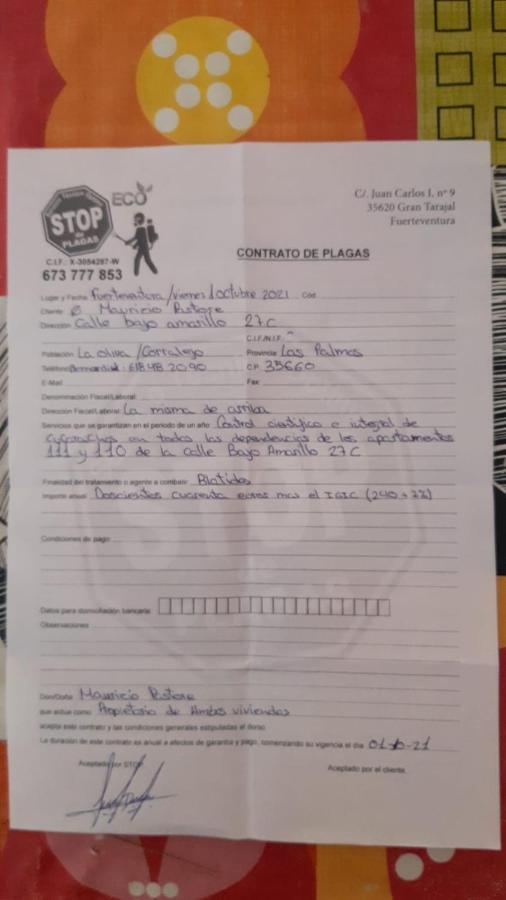 ECO
STOP
de
PLAGAS
C.I.F.: X-3054287-W
673 777 853
C/. Juan Carlos I, nº 9
35620 Gran Tarajal
Fuerteventura
CONTRATO DE PLAGAS
Lugar y Fecha: Fuerteventura/viernes 1 octubre 2021 Cód.
Cliente: Mauricio Pastore
Dirección: Calle bajo amarillo 27C
C.I.F./N.I.F.
Población: La Oliva /Corralejo Provincia: Las Palmas
Teléfono: 618 48 2090 C.P. 35660
E-Mail Fax
Denominación Fiscal/Laboral:
Dirección Fiscal/Laboral: La misma de arriba
Servicios que se garantizan en el periodo de un año: Control científico e integral de
cucarachas en todas las dependencias de los apartamentos
111 y 110 de la Calle Bajo Amarillo 27C
Finalidad del tratamiento o agente a combatir: Blatidos
Importe anual: Doscientos cuarenta euros mas el IGIC (240 + 7%)
Condiciones de pago:
Datos para domiciliación bancaria:
Observaciones
Don/Doña: Mauricio Pastore
que actúa como: Propietario de Ambas viviendas
acepta este contrato y las condiciones generales estipuladas al dorso.
La duración de este contrato es anual a efectos de garantía y pago, comenzando su vigencia el día 01-10-21
Aceptado por STOP Aceptado por el cliente.